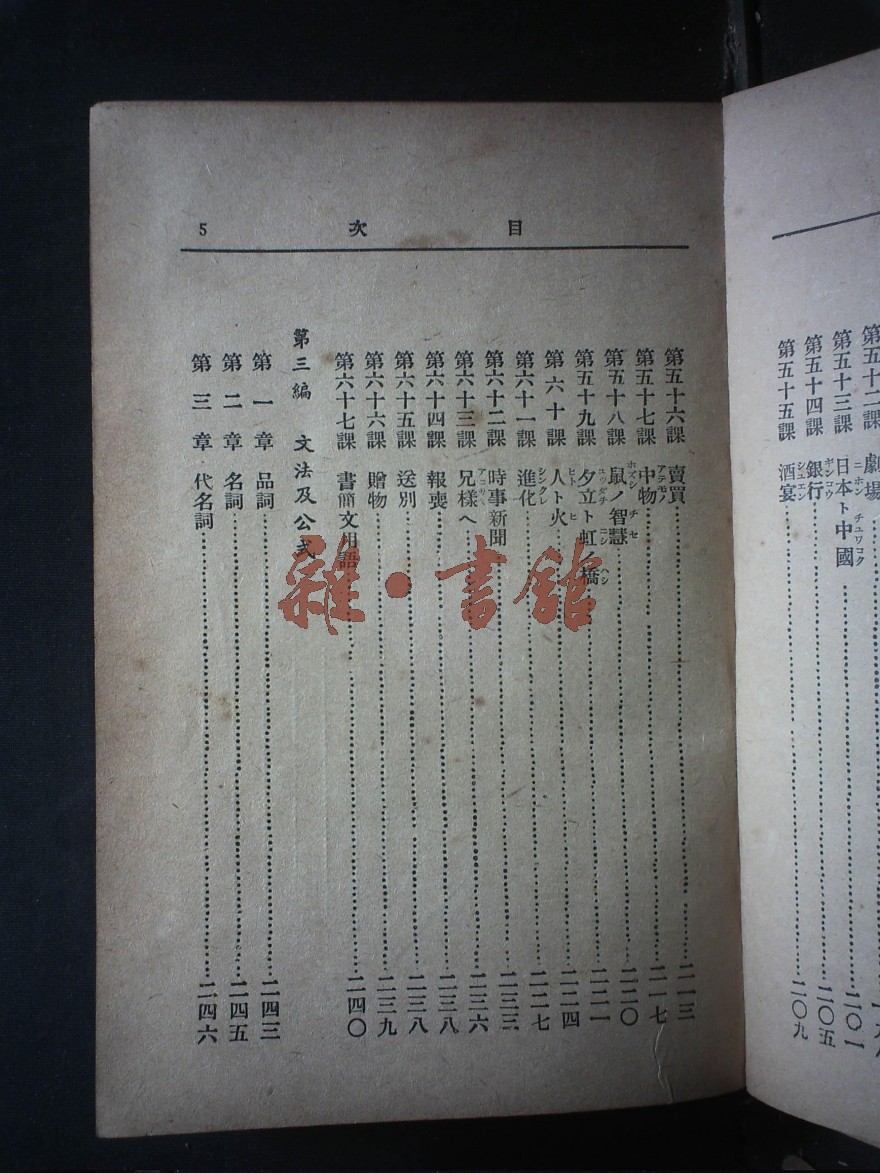 目次 5
第五十三課 日本ト中國 二〇一
第五十四課 銀行 二〇五
第五十五課 酒宴 二〇九
第五十六課 賣買 二一三
第五十七課 中物 二一七
第五十八課 鼠ノ智慧 二二〇
第五十九課 夕立ト虹ノ橋 二二一
第六十課 人ト火 二二四
第六十一課 進化 二二七
第六十二課 時事新聞 二三三
第六十三課 兄樣へ 二三六
第六十四課 報喪 二三八
第六十五課 送別 二三八
第六十六課 贈物 二三九
第六十七課 書簡文用語 二四〇
第三編 文法及公式
第一章 品詞 二四三
第二章 名詞 二四五
第三章 代名詞 二四六
雜·書館